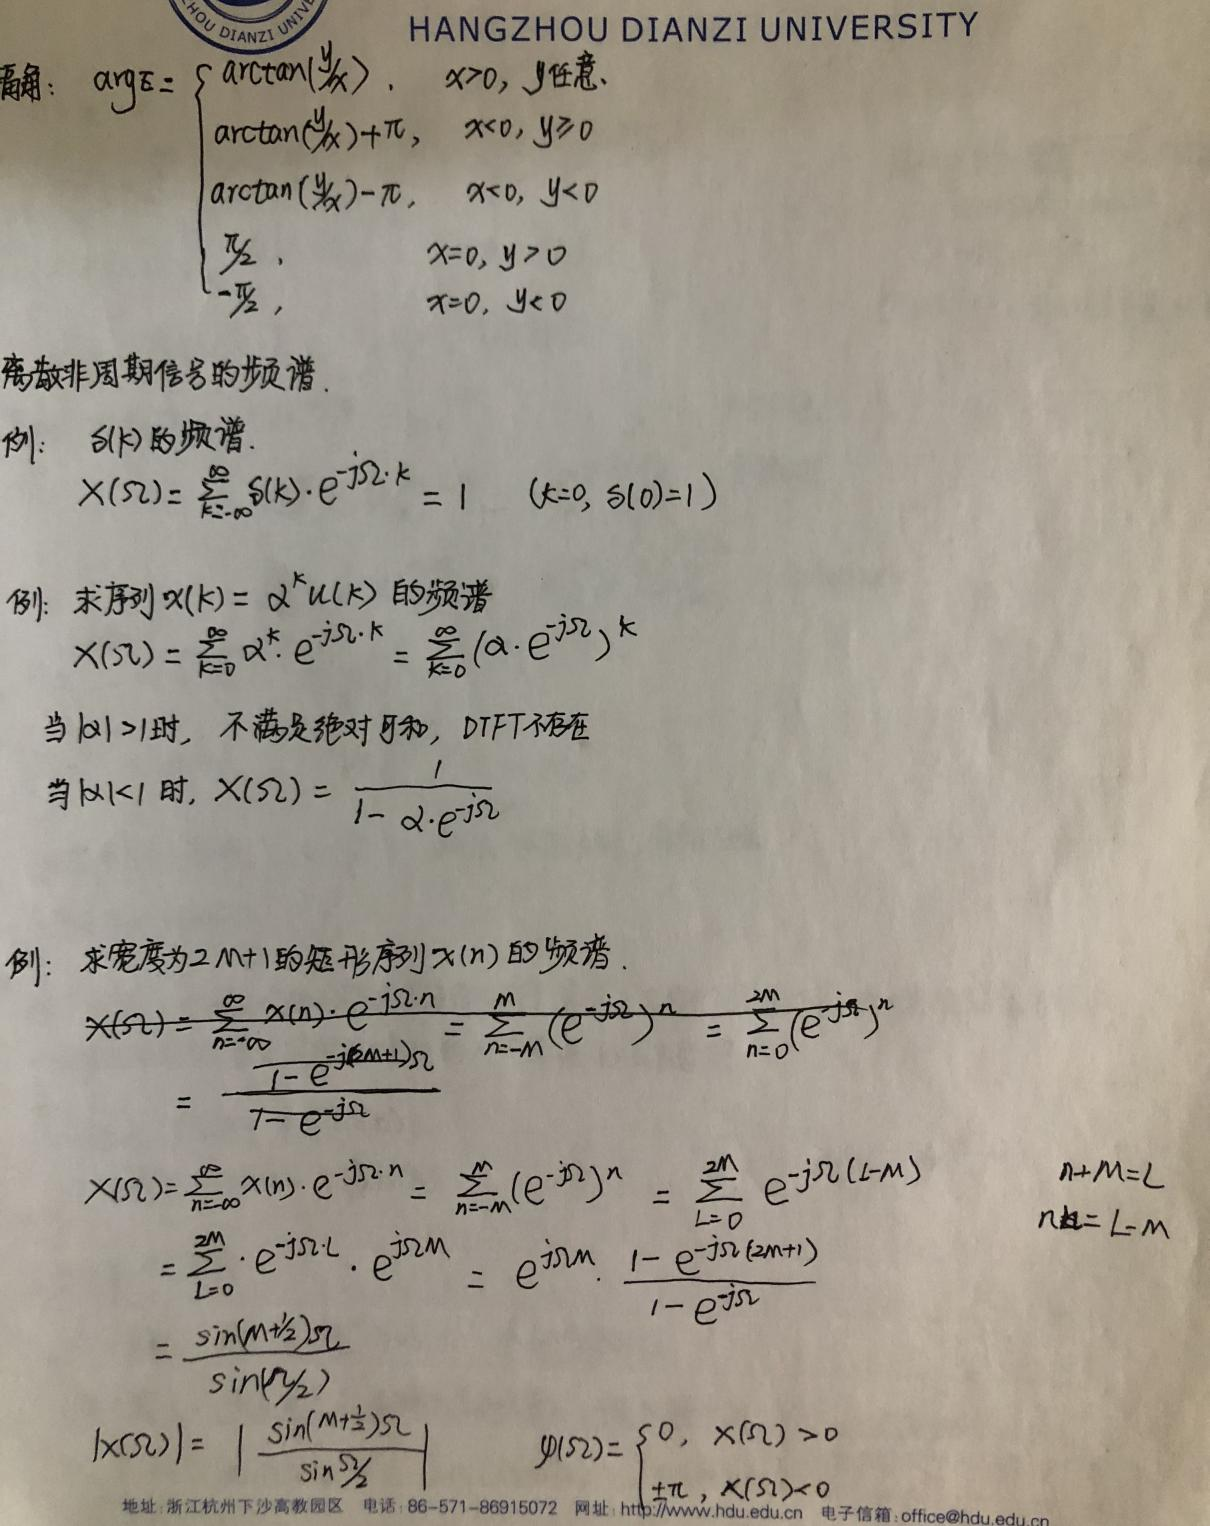 ZHOU DIANZI UNIVE
HANGZHOU DIANZI UNIVERSITY
辐角: argz = { arctan(y/x), x>0, y任意.
arctan(y/x)+π, x<0, y≥0
arctan(y/x)-π, x<0, y<0
π/2, x=0, y>0
-π/2, x=0, y<0
离散非周期信号的频谱.
例: δ(k)的频谱.
X(Ω)= ∑_{k=-∞}^{∞} δ(k)·e^{-jΩ·k} = 1 (k=0, δ(0)=1)
例: 求序列x(k)= α^k u(k) 的频谱
X(Ω) = ∑_{k=0}^{∞} α^k·e^{-jΩ·k} = ∑_{k=0}^{∞} (α·e^{-jΩ})^k
当|α|>1时, 不满足绝对可和, DTFT不存在
当|α|<1时, X(Ω) = 1/(1-α·e^{-jΩ})
例: 求宽度为2M+1的矩形序列x(n)的频谱.
X(Ω) = ∑_{n=-∞}^{∞} x(n)·e^{-jΩ·n} = ∑_{n=-M}^{M} (e^{-jΩ})^n = ∑_{n=0}^{2M} (e^{-jΩ})^n
= (1-e^{-j(2M+1)Ω})/(1-e^{-jΩ})
X(Ω)= ∑_{n=-∞}^{∞} x(n)·e^{-jΩ·n} = ∑_{n=-M}^{M} (e^{-jΩ})^n = ∑_{L=0}^{2M} e^{-jΩ(L-M)} n+M=L
n = L-M
= ∑_{L=0}^{2M} ·e^{-jΩ·L}·e^{jΩM} = e^{jΩM}·(1-e^{-jΩ(2M+1)})/(1-e^{-jΩ})
= sin(M+1/2)Ω / sin(Ω/2)
|X(Ω)| = | sin(M+1/2)Ω / sin Ω/2 | φ(Ω)= { 0, X(Ω)>0
±π, X(Ω)<0
地址:浙江杭州下沙高教园区 电话:86-571-86915072 网址:http://www.hdu.edu.cn 电子信箱:office@hdu.edu.cn